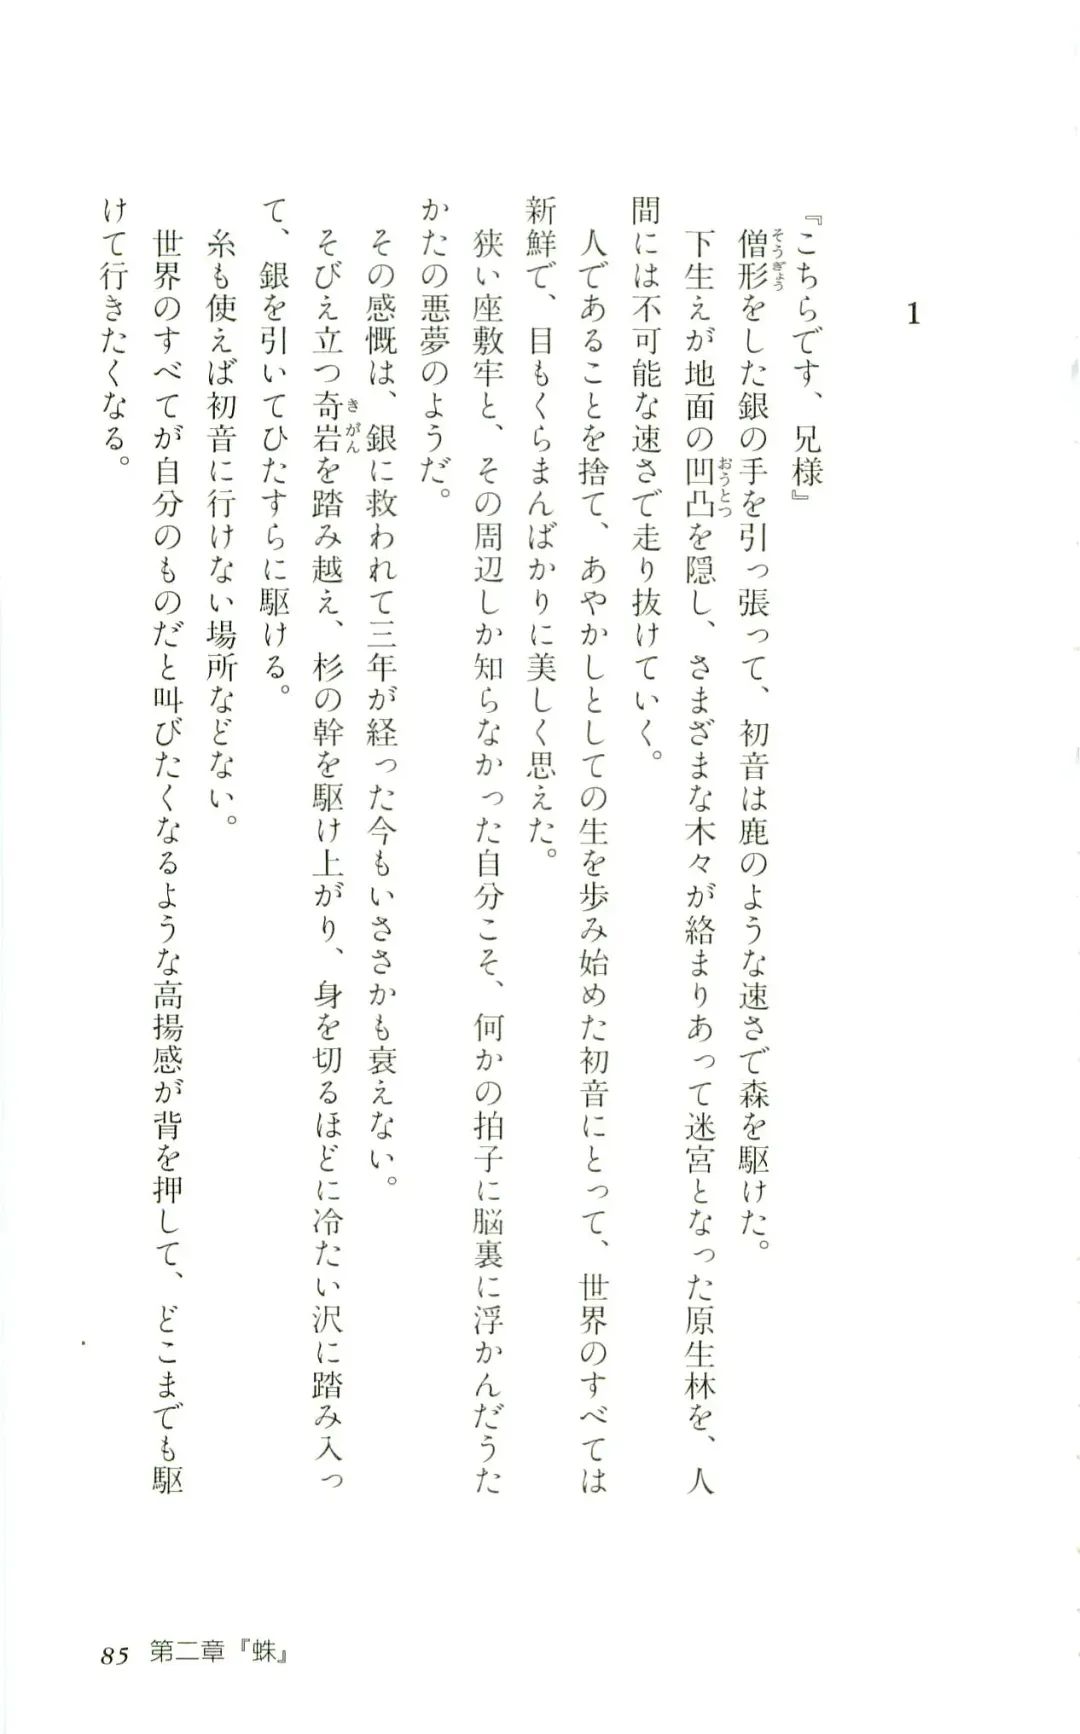 1
『こちらです、兄様』
僧形をした銀の手を引っ張って、初音は鹿のような速さで森を駆けた。
そうぎょう
下生えが地面の凹凸を隠し、さまざまな木々が絡まりあって迷宮となった原生林を、人
おうとつ
間には不可能な速さで走り抜けていく。
人であることを捨て、あやかしとしての生を歩み始めた初音にとって、世界のすべては
新鮮で、目もくらまんばかりに美しく思えた。
狭い座敷牢と、その周辺しか知らなかった自分こそ、何かの拍子に脳裏に浮かんだうた
かたの悪夢のようだ。
その感慨は、銀に救われて三年が経った今もいささかも衰えない。
そびえ立つ奇岩を踏み越え、杉の幹を駆け上がり、身を切るほどに冷たい沢に踏み入っ
きがん
て、銀を引いてひたすらに駆ける。
糸も使えば初音に行けない場所などない。
世界のすべてが自分のものだと叫びたくなるような高揚感が背を押して、どこまでも駆
けて行きたくなる。
85 第二章『蛛』